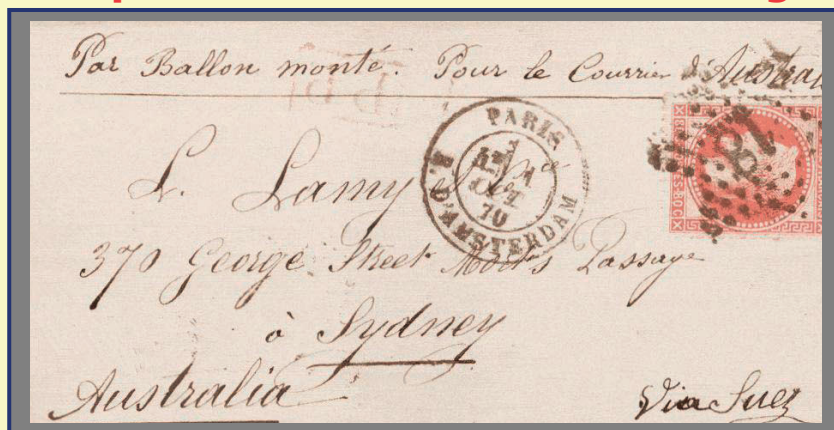 Par Ballon monté. Pour le Courrier d'Austra
PARIS
OCT.
70
R. D'AMSTERDAM
18
L. Lamy
370 George Street Passage
à Sydney
Australia
Via Suez